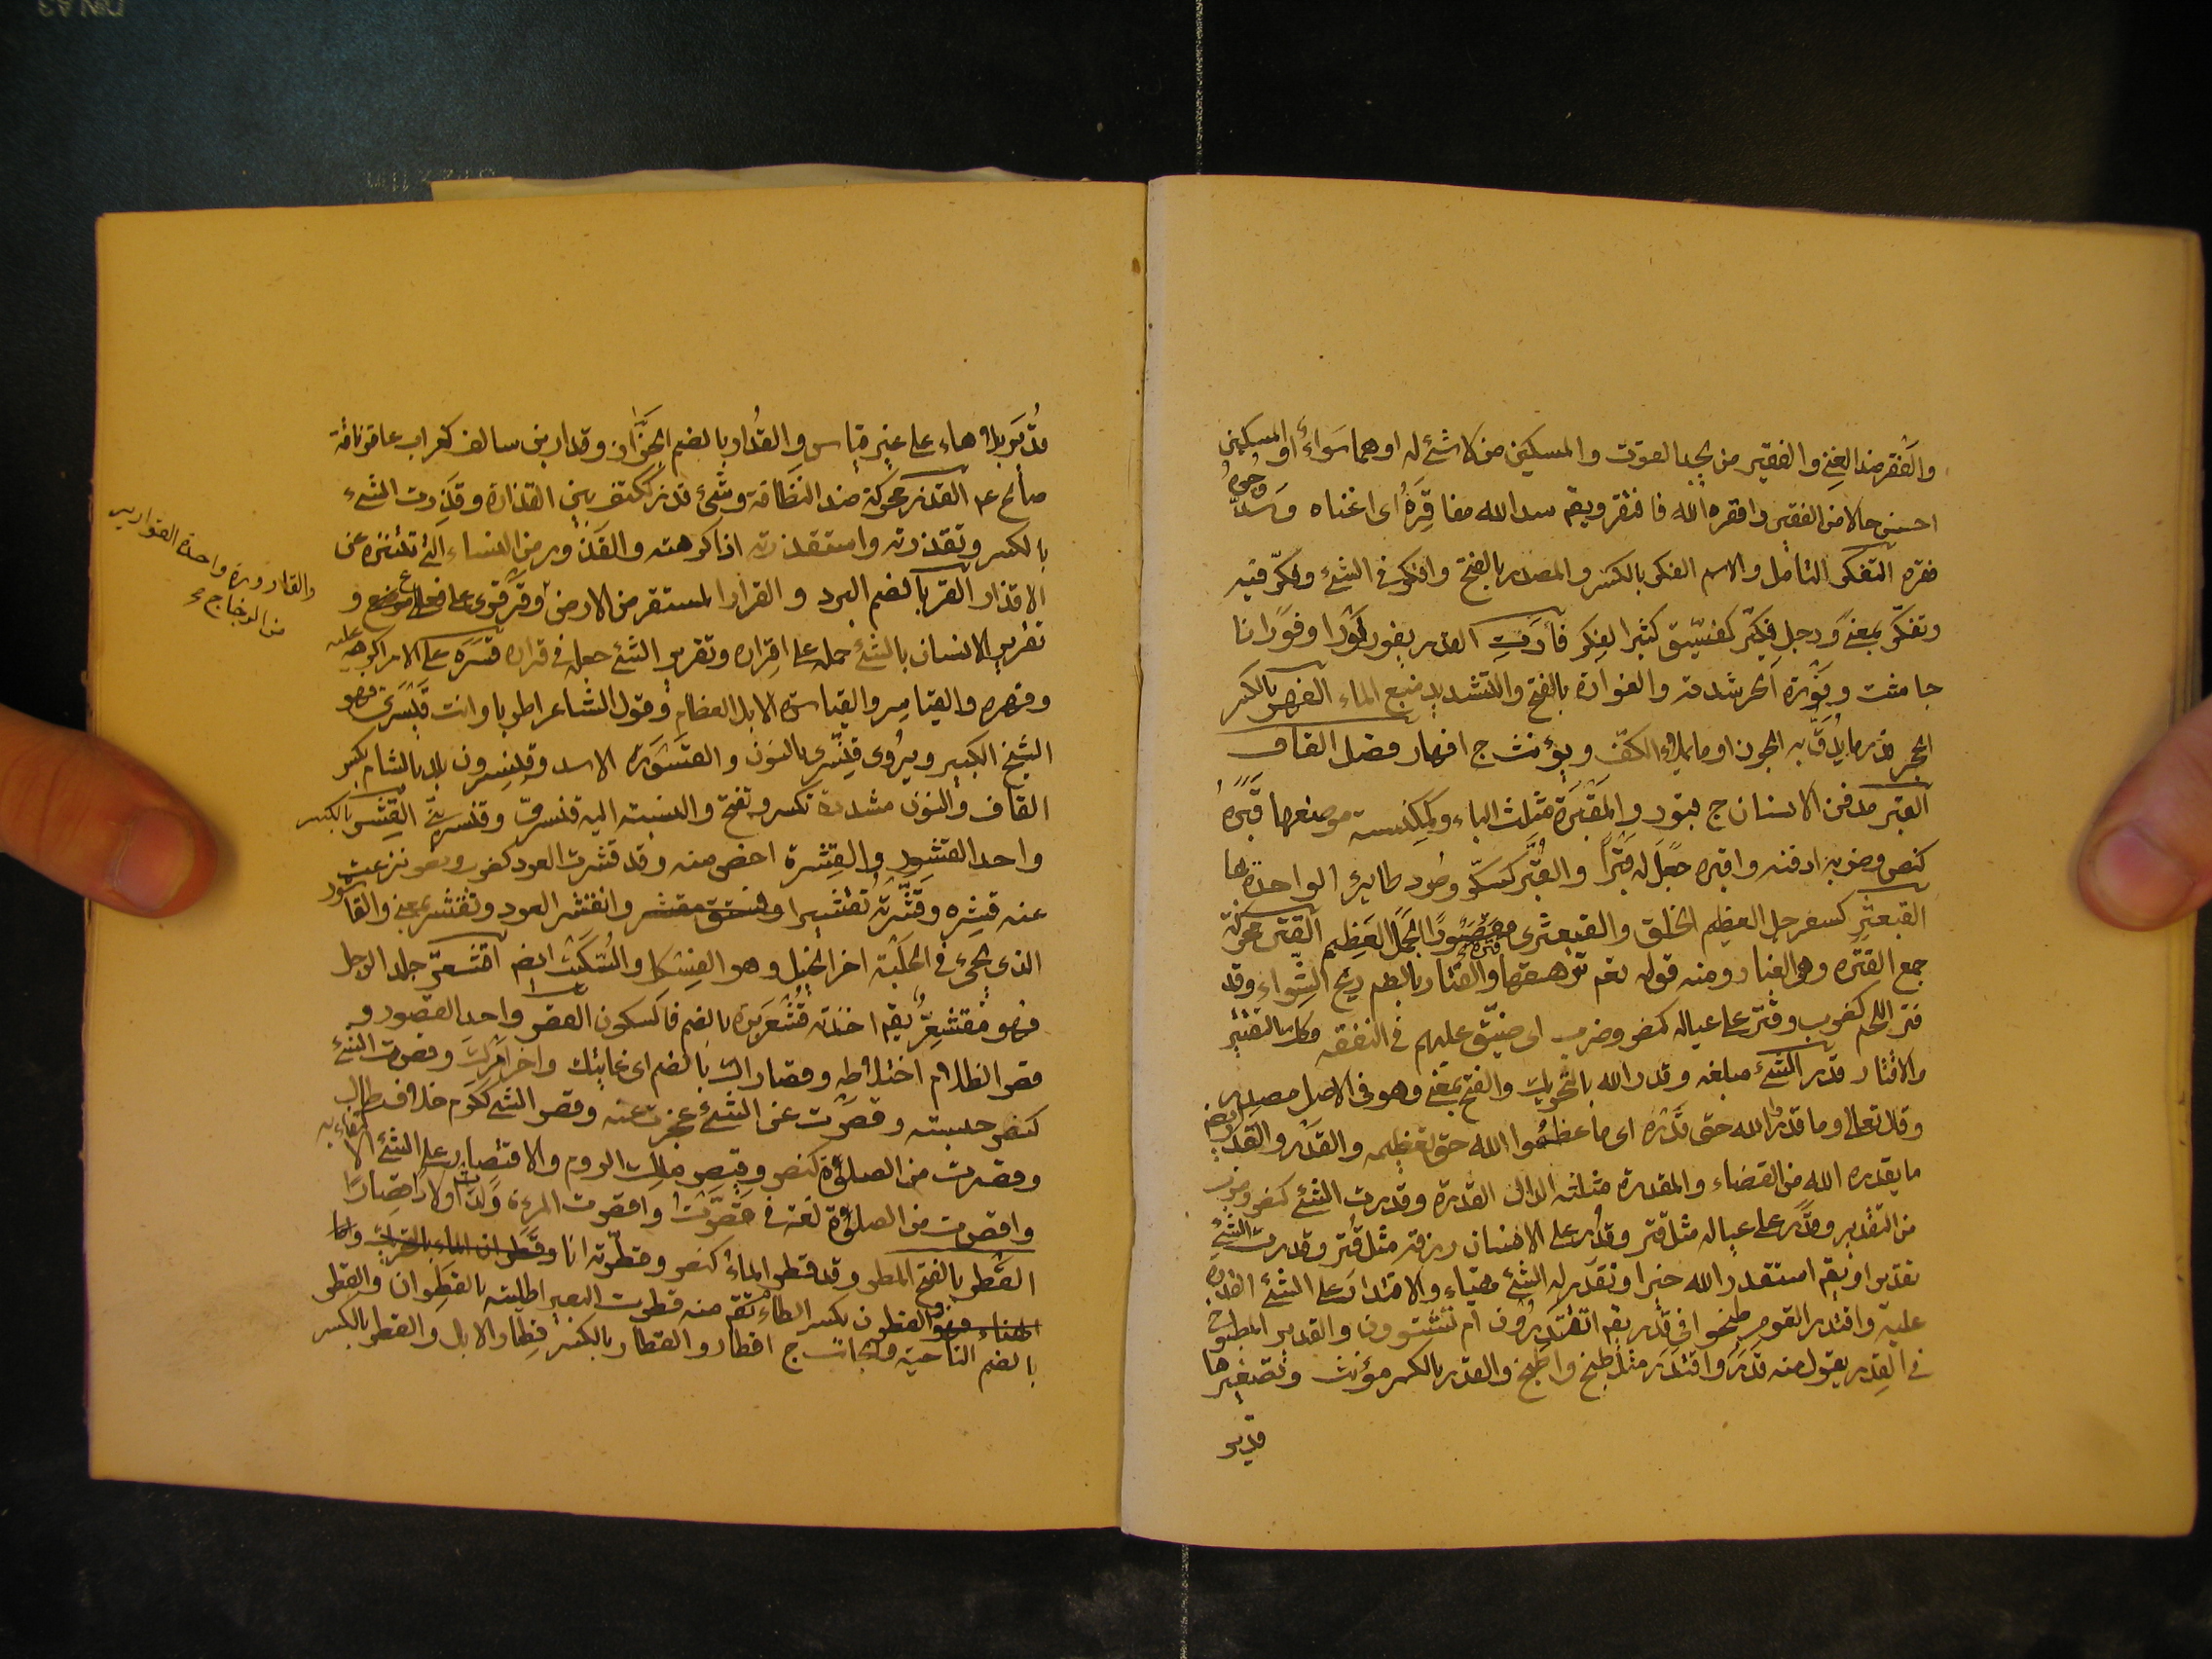 والفقر ضد الغنى والفقير من يجد القوت والمسكين من لا شئ له او هما سواء او المسكين
احسن حالا من الفقير وافقره الله فافتقر ويقم سد الله مفاقره اى اغناه وسد وجوه
فقره التفكر التامل والاسم الفكر بالكسر والمصدر بالفتح وافكر فى الشئ وفكر فيه
وتفكر بمعنى ورجل فكير كفسيق كثير الفكر فارت القدر يفور فورا وفورانا
جاشت وفورة الحر شدته والفوارة بالفتح والتشديد منبع الماء الفهر بالكسر
الحجر قدر ما يدق به الجوز او ما يملاء الكف ويؤنث ج افهار فصل القاف
القبر مدفن الانسان ج قبور والمقبرة مثلث الباء وكمكنسة موضعها قبره
كنصر وضربه ادفنه واقبره جعل له قبرا والقبر كسكر وصرد طاير الواحدة بهاء
القبعثر كسفرجل العظيم الخلق والقبعثرى مقصورا الجمل العظيم القتر محركة
جمع القترة وهى الغبار ومنه قوله تعم ترهقها قترة والقتار بالضم ريح الشواء وقد
قتر اللحم كضرب وقتر على عياله كنصر وضرب اى ضيق عليهم فى النفقه وكذا التقتير
والاقتار قدر الشئ مبلغه وقدر الله بالتحريك والفتح بمعنى وهو فى الاصل مصدر
وقال تعالى وما قدروا الله حق قدره اى ما عظموا الله حق تعظيمه والقدر والقدر ايضم
ما يقدره الله من القضاء والمقدرة مثلثه الدال القدرة وقدرت الشئ كنصر وضرب
من التقدير وقدر على عياله مثل قتر وقدر على الانسان رزقه مثل قتر وقدرت الشئ
تقديرا ويقم استقدر الله خيرا وتقدر له الشئ تهياء والاقتدار على الشئ القدرة
عليه واقتدر القوم طبخوا فى قدر يقم اتقتدرون ام تشتوون والقدير المطبوخ
فى القدر يقول منه قدر واقتدر مثل طبخ واطبخ والقدر بالكسر مؤنث وتصغيرها
قدير
قدير بلا هاء على غير قياس والقدار بالضم الجزار وقدار بن سالف كغراب عاقر ناقة
صالح ع القذر محركة ضد النظافة وشئ قذر ككتف بين القذارة وقذرت الشئ
بالكسر وتقذرته واستقذرته اذا كرهته والقذور من النساء التى تتنزه عن
الاقذار القر بالضم البرد والقرار المستقر من الارض وقرقرى على فعللى موضع و
تقرير الانسان بالشئ حمله على اقراره وتقرير الشئ جعله فى قراره قسره على الامر اكرهه عليه
وقهره والقياسر والقياسرة الابل العظام وقول الشاعر اطربا وانت قيسرى فهو
الشيخ الكبير ويروى قنسرى بالنون والقسورة الاسد وقنسرون بلد بالشام بكسر
القاف والنون مشددة تكسر وتفتح والنسبة اليه قنسرى وقنسرينى القشر بالكسر
واحد القشور والقشرة اخص منه وقد قشرت العود كضرب ونصر نزعت
عنه قشره وقشرته تقشيرا وفستق مقشر وانقشر العود وتقشر بمعنى والقاشور
الذى يجئ فى الحلبة اخر الخيل وهو الفسكل والسكيت ايضم اقشعر جلد الرجل
فهو مقشعر يقم اخذته قشعريرة بالضم فالسكون القصر واحد القصور و
قصر الظلام اختلاطه وقصاراك بالضم اى غايتك واخر امرك وقصرت الشئ
كنصر حبسته وقصرت عن الشئ عجزت عنه وقصر الشئ ككرم خلاف طال
وقصرت من الصلوة كنصر وقيصر ملك الروم والاقتصار على الشئ الاكتفاء به
واقصرت من الصلوة لغة فى قصرت واقصرت المرءة ولدت اولادا قصارا
القطر بالفتح المطر وقد قطر الماء كنصر وقطرته انا وقطران الماء بالتحريك واما
الهناء فهو القطران بكسر الطاء تقم منه قطرت البعير اطليته بالقطران والقطر
بالضم الناحية والجانب ج اقطار والقطار بالكسر قطار الابل والقطر بالكسر
والقارورة واحدة القوارير
من الزجاج